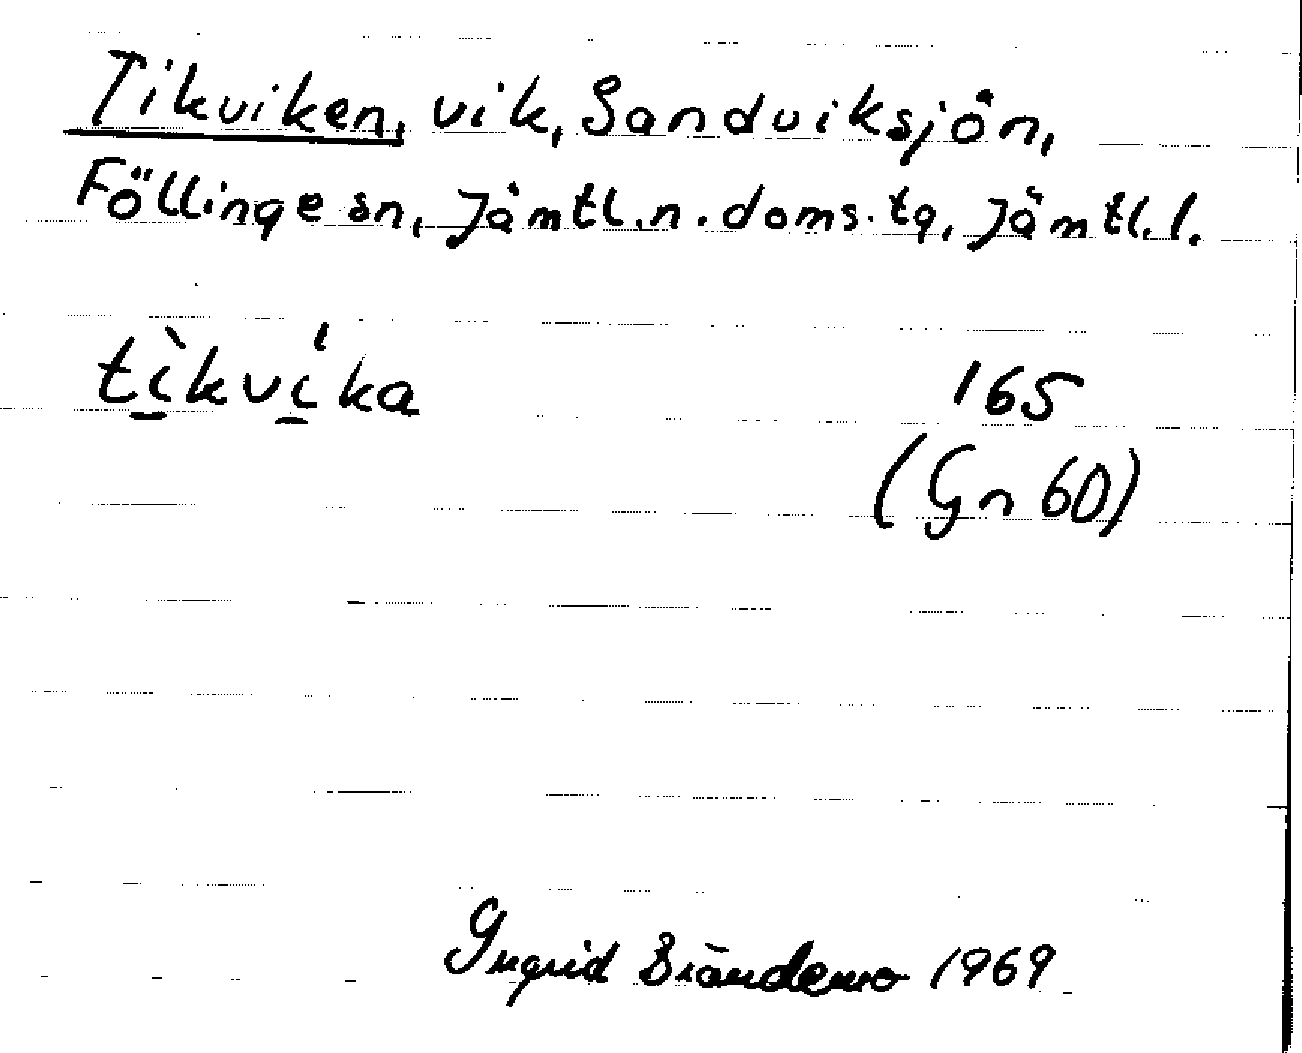 Tikviken, vik, Sandviksjön,
Föllinge sn, Jämtl.n.doms.tg, Jämtl.l.
tìkvíka 165
(Gn 60)
Ingrid Brändemo 1969